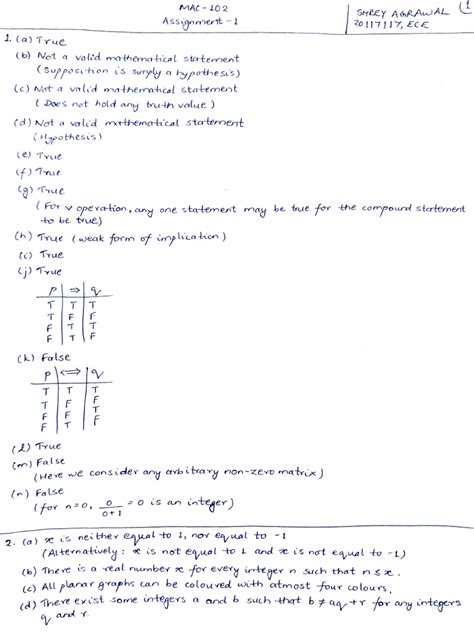 MAC-102
Assignment-1
SHREY AGRAWAL
20117117, ECE
1
1. (a) True
(b) Not a valid mathematical statement
(Supposition is simply a hypothesis)
(c) Not a valid mathematical statement
(Does not hold any truth value)
(d) Not a valid mathematical statement
(Hypothesis)
(e) True
(f) True
(g) True
(For ∨ operation, any one statement may be true for the compound statement
to be true)
(h) True (weak form of implication)
(i) True
(j) True
p | ⇒ | q
T | T | T
T | F | F
F | T | T
F | T | F
(k) False
p | ⟺ | q
T | T | T
T | F | F
F | F | T
F | T | F
(l) True
(m) False
(Here we consider any arbitrary non-zero matrix)
(n) False
(for n=0, 0/0+1 = 0 is an integer)
2. (a) x is neither equal to 1, nor equal to -1
(Alternatively: x is not equal to 1 and x is not equal to -1)
(b) There is a real number x for every integer n such that n ≤ x.
(c) All planar graphs can be coloured with atmost four colours.
(d) There exist some integers a and b such that b ≠ aq + r for any integers
q and r.